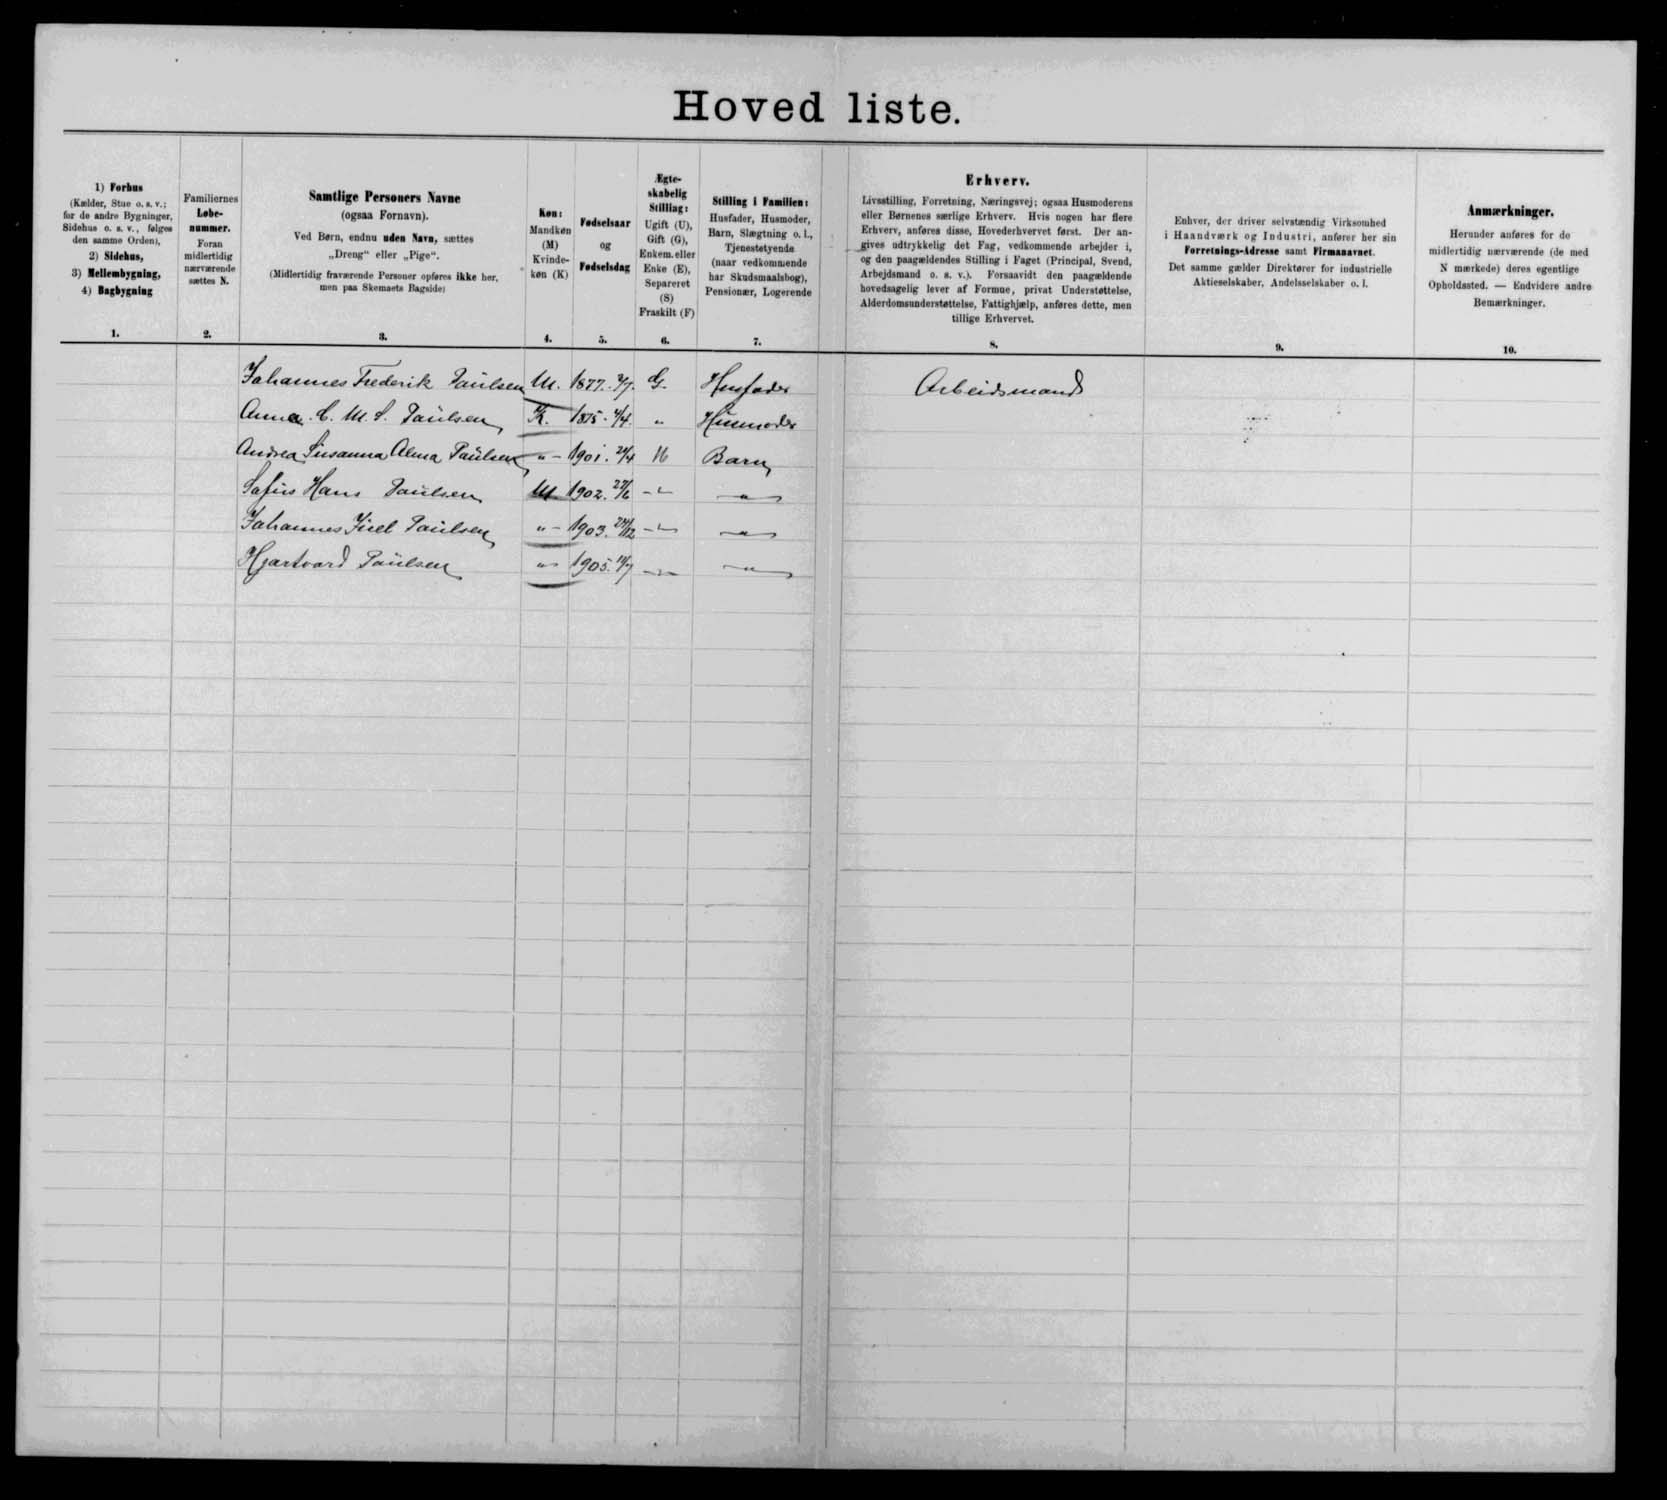 Hoved liste.
1) Forhus
(Kælder, Stue o. s. v.;
for de andre Bygninger,
Sidehus o. s. v., følges
den samme Orden),
2) Sidehus,
3) Mellembygning,
4) Bagbygning
1.
Familiernes
Løbe-
nummer.
Foran
midlertidig
nærværende
sættes N.
2.
Samtlige Personers Navne
(ogsaa Fornavn).
Ved Børn, endnu uden Navn, sættes
„Dreng“ eller „Pige“.
(Midlertidig fraværende Personer opføres ikke her,
men paa Skemaets Bagside)
3.
Køn:
Mandkøn
(M)
Kvinde-
køn (K)
4.
Fødselsaar
og
Fødselsdag
5.
Ægte-
skabelig
Stilling:
Ugift (U),
Gift (G),
Enkem. eller
Enke (E),
Separeret
(S)
Fraskilt (F)
6.
Stilling i Familien:
Husfader, Husmoder,
Barn, Slægtning o. l.,
Tjenestetyende
(naar vedkommende
har Skudsmaalsbog),
Pensionær, Logerende
7.
Erhverv.
Livsstilling, Forretning, Næringsvej; ogsaa Husmoderens
eller Børnenes særlige Erhverv. Hvis nogen har flere
Erhverv, anføres disse, Hovederhvervet først. Der an-
gives udtrykkelig det Fag, vedkommende arbejder i,
og den paagældendes Stilling i Faget (Principal, Svend,
Arbejdsmand o. s. v.). Forsaavidt den paagældende
hovedsagelig lever af Formue, privat Understøttelse,
Alderdomsunderstøttelse, Fattighjælp, anføres dette, men
tillige Erhvervet.
8.
Enhver, der driver selvstændig Virksomhed
i Haandværk og Industri, anfører her sin
Forretnings-Adresse samt Firmanavnet.
Det samme gælder Direktører for industrielle
Aktieselskaber, Andelsselskaber o. l.
9.
Anmærkninger.
Herunder anføres for de
midlertidig nærværende (de med
N mærkede) deres egentlige
Opholdssted. — Endvidere andre
Bemærkninger.
10.
Johannes Frederik Paulsen M. 1877. 2/7. G. Husfader Arbeidsmand
Anna. C. M. S. Paulsen K. 1875. 4/4. " Husmoder
Andrea Susanna Alma Paulsen "- 1901. 21/4 U Barn
Sofus Hans Paulsen M 1902. 27/6 -"- -"-
Johannes Juel Paulsen "- 1903. 24/12 -"- -"-
Hjartvard Paulsen "- 1905. /7 -"- -"-